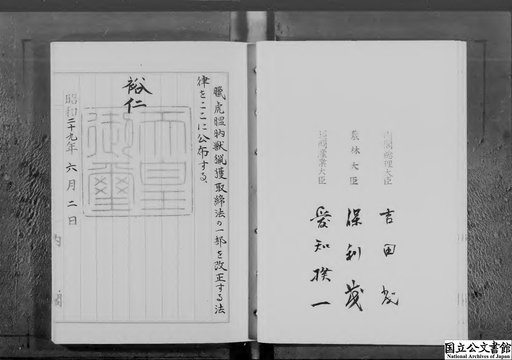 臘虎膃肭獣猟獲取締法の一部を改正する法
律をここに公布する。
裕仁
天皇
御璽
昭和二十九年六月二日
内閣
内閣総理大臣 吉田茂
農林大臣 保利茂
通商産業大臣 愛知揆一
国立公文書館
National Archives of Japan